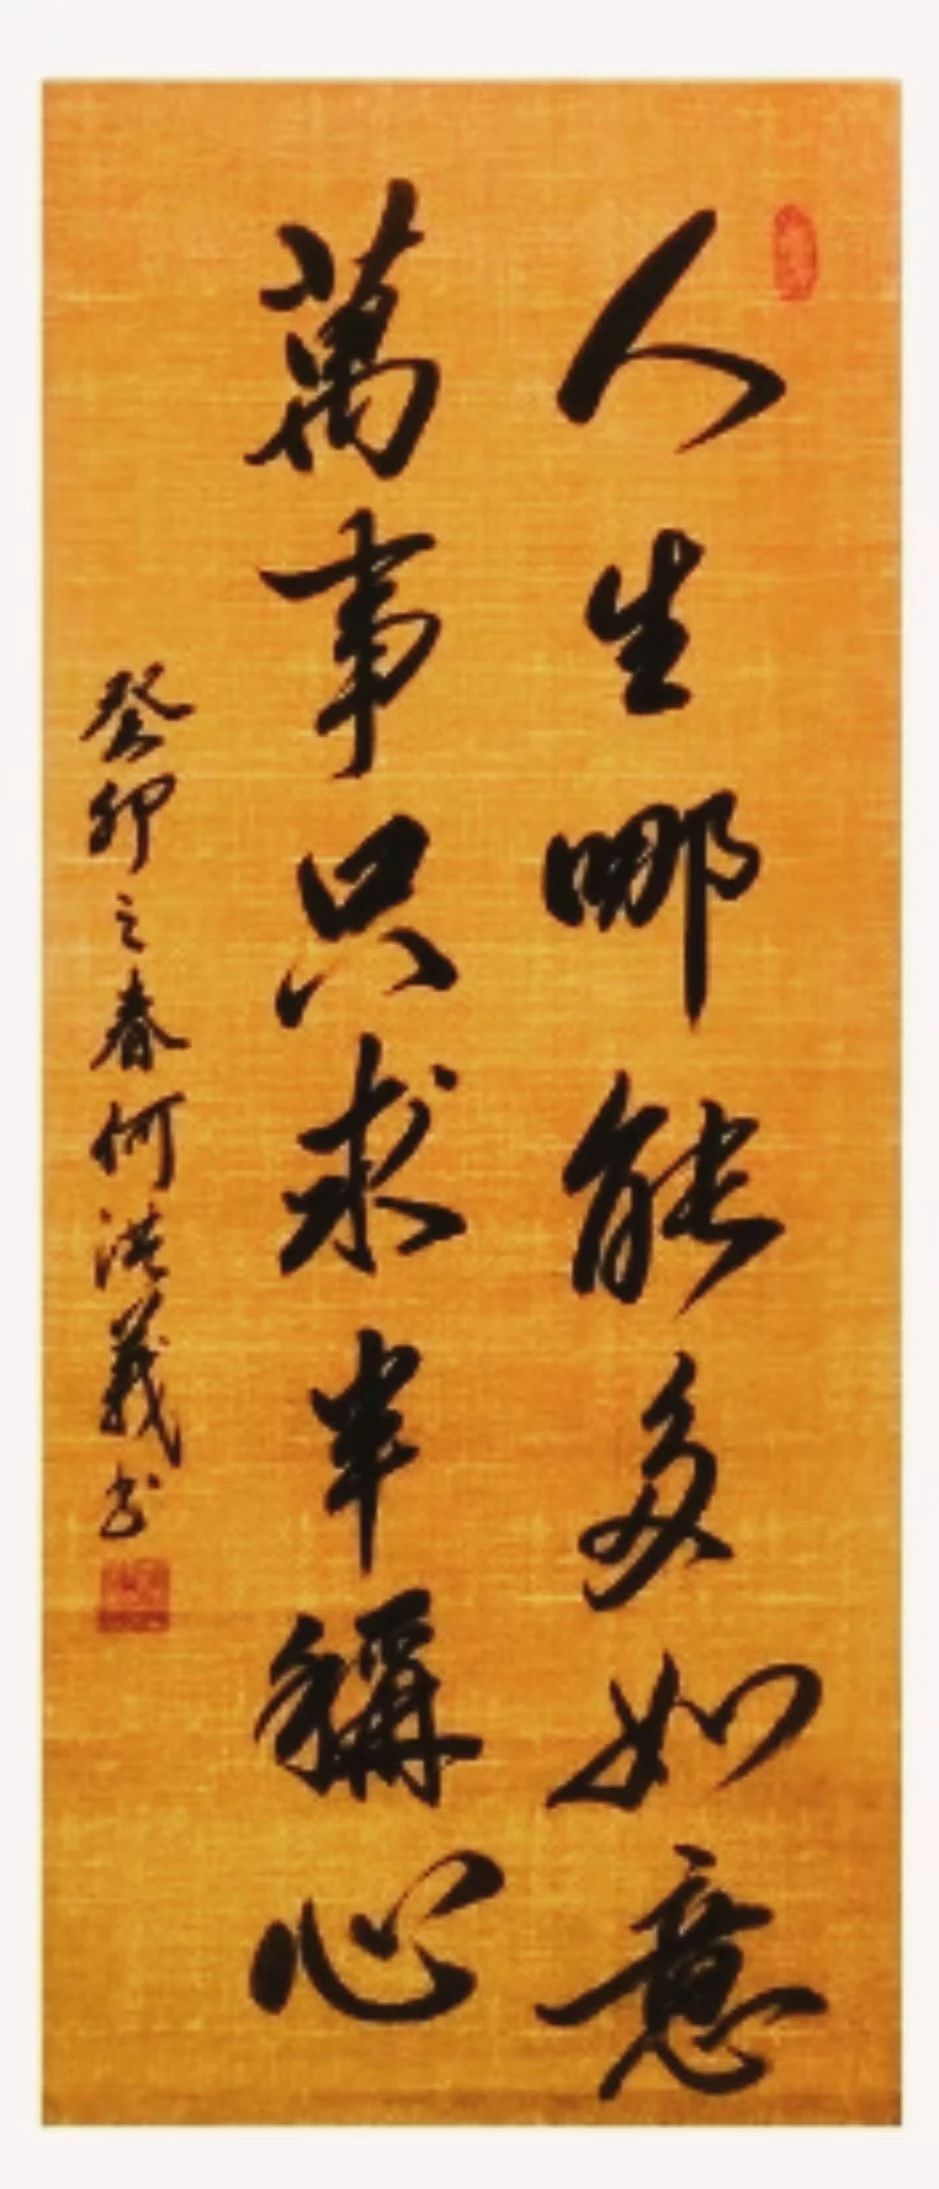 人生哪能多如意
萬事只求半稱心
癸卯之春何洪義书